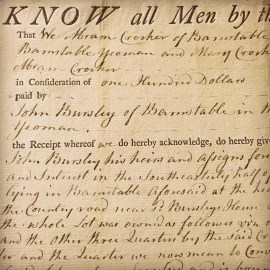 KNOW all Men by th
That We Abram Crocker of Barnstable
Barnstable Yeoman and Mary Crock
Abram Crocker
in Consideration of one Hundred Dollars
paid by
John Bursley of Barnstable in th
Yeoman.
the Receipt whereof we do hereby acknowledge, do hereby give
John Bursley his heirs and assigns forev
and Interest in the Southeasterly half of
lying in Barnstable aforesaid at the
the Country road near Bursleys House
the whole Lot was owned as follows viz
and the other three Quarters by the said Cr
er and the Quarter we now mean to Con